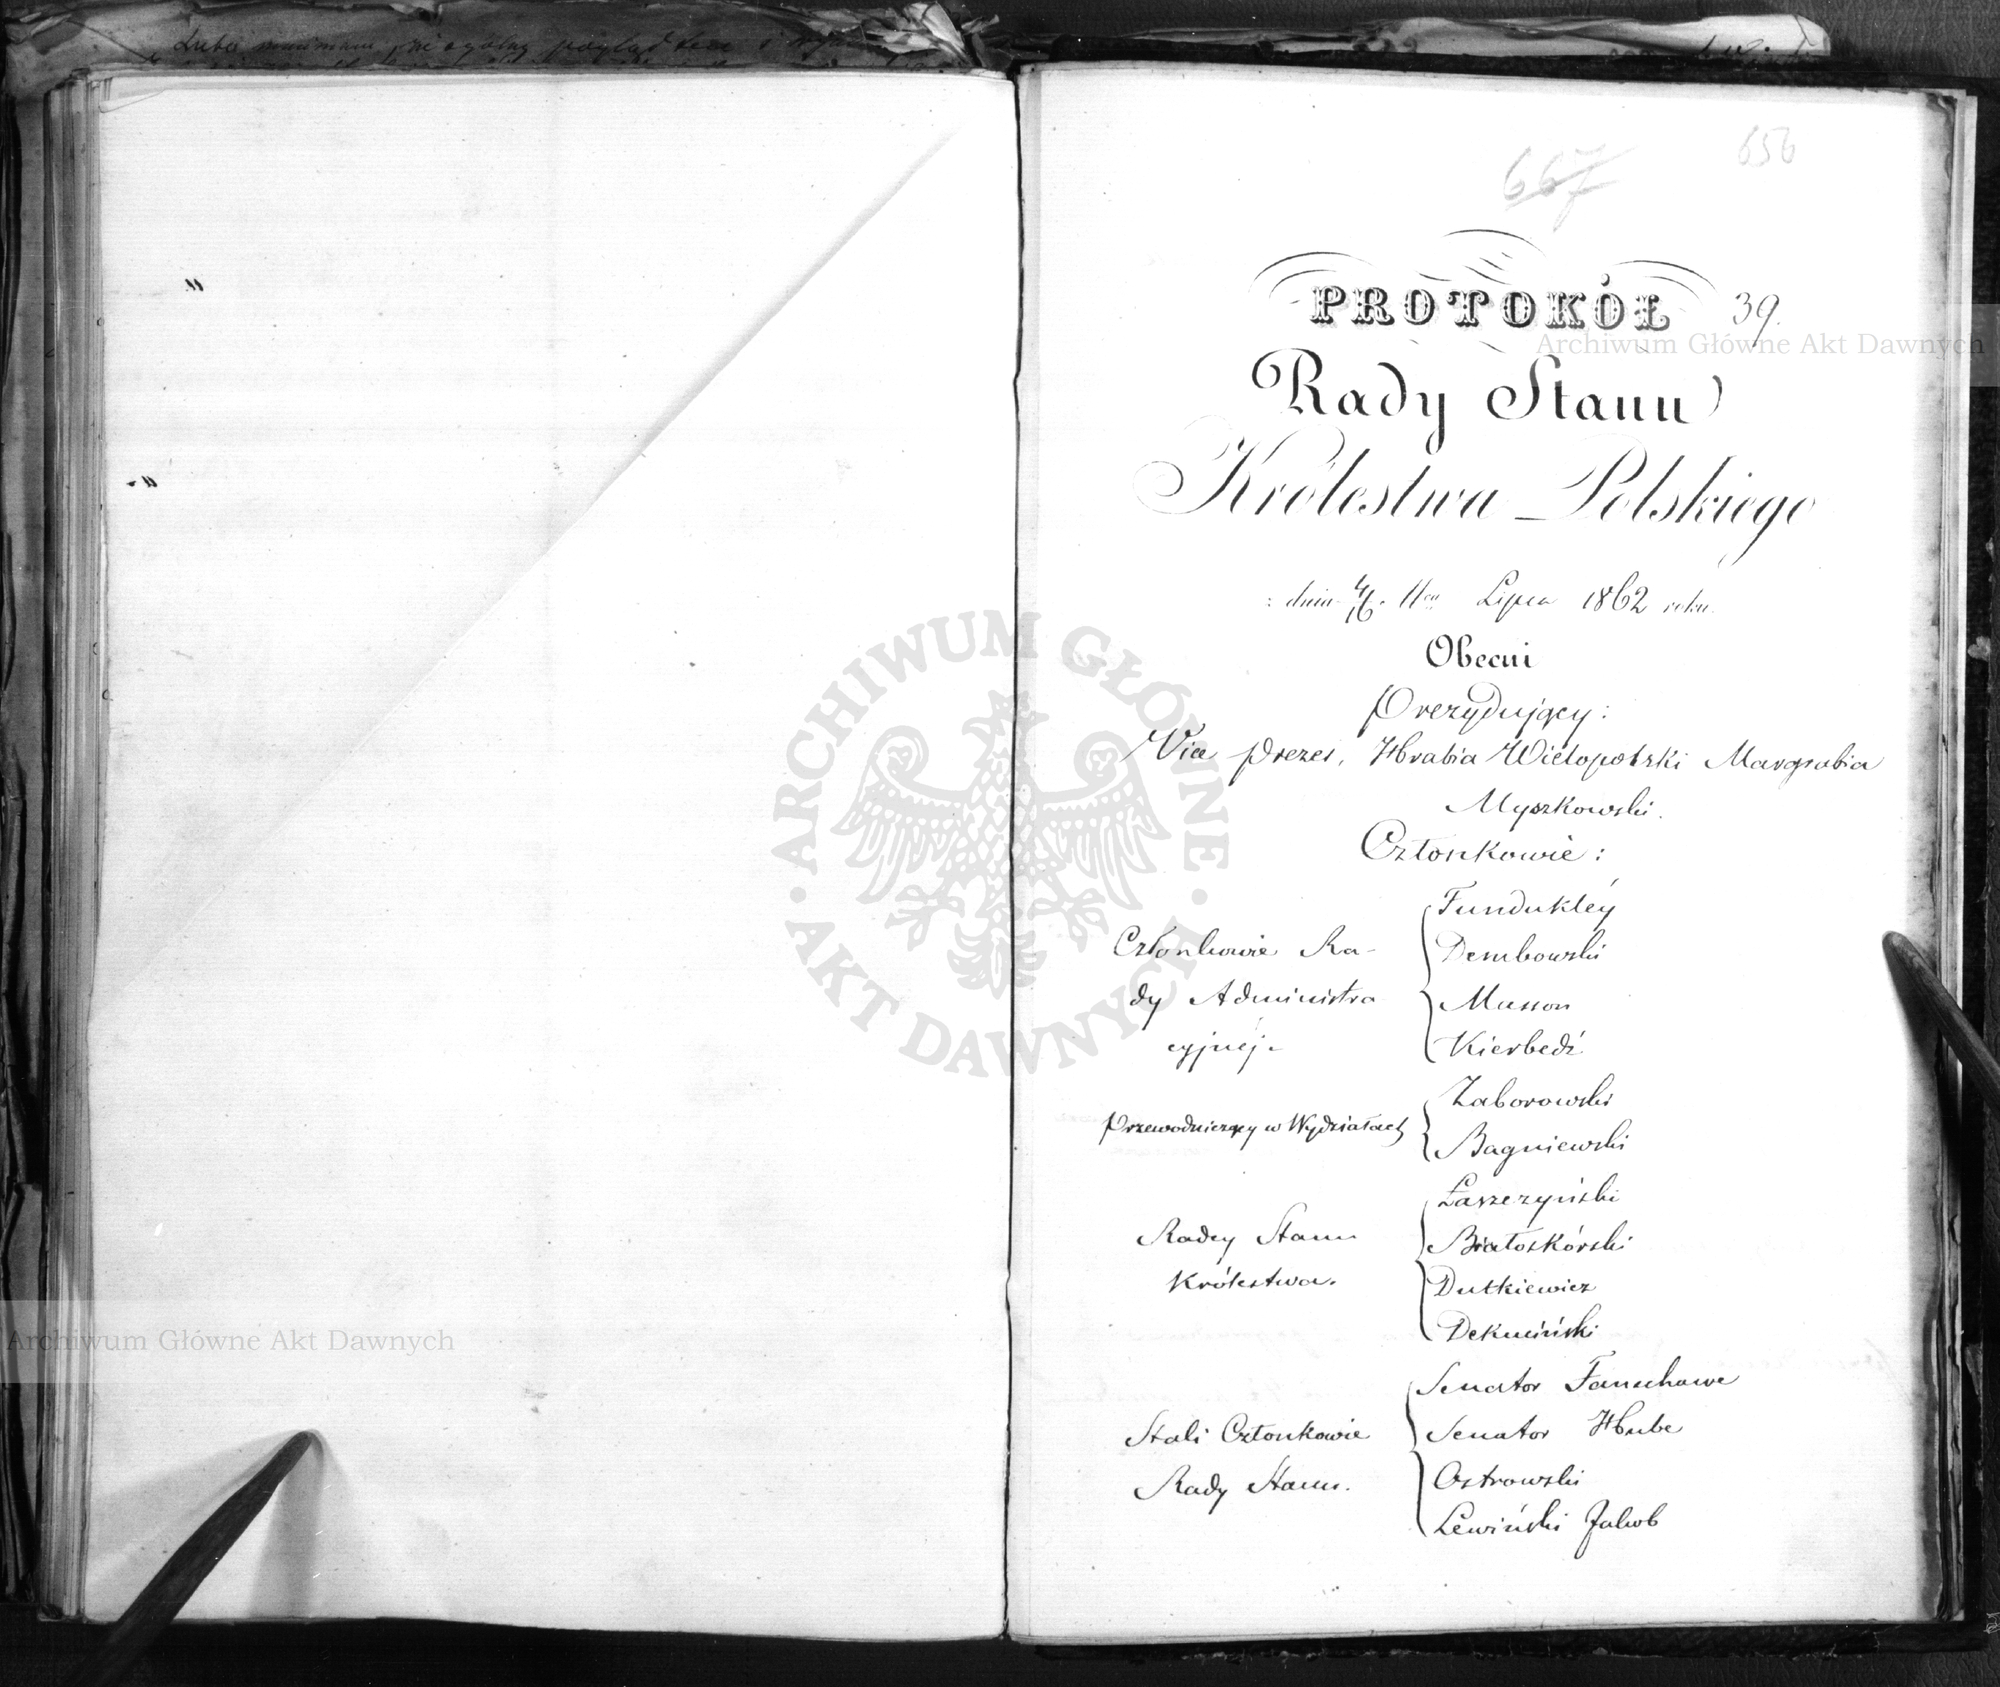 667
656
PROTOKÓŁ 39.
Rady Stanu
Królestwa Polskiego
dnia 4/16. Lipca 1862 roku.
Obecni
Prezydujący:
Vice Prezes, Hrabia Wielopolski Margrabia
Myszkowski.
Członkowie:
Członkowie Ra-
dy Administra
cyjnej.
Fundukley
Dembowski
Musson
Kierbedź
Przewodniczący w Wydziałach
Zaborowski
Bagniewski
Radcy Stanu
Królestwa.
Łaszczyński
Białoskórski
Dutkiewicz
Dekuciński
Stali Członkowie
Rady Stanu.
Senator Fanschawe
Senator Hube
Ostrowski
Lewiński Jakob
Archiwum Główne Akt Dawnych
ARCHIWUM GŁÓWNE AKT DAWNYCH
Archiwum Główne Akt Dawnych